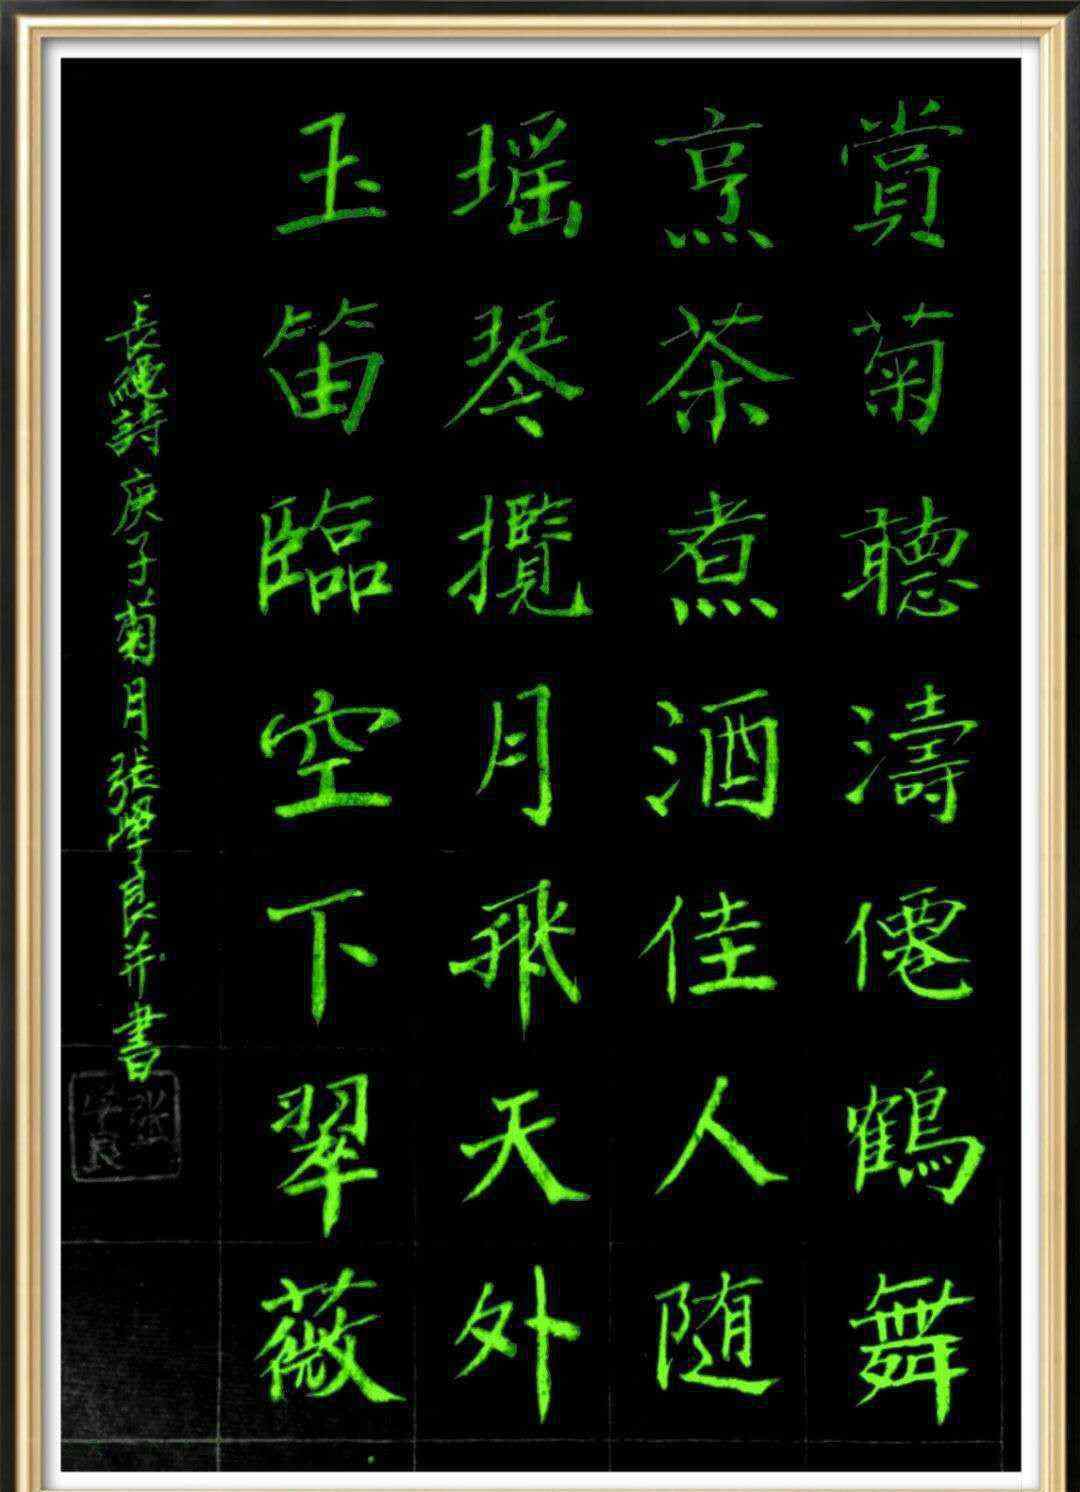 賞菊聽濤僊鶴舞
烹茶煮酒佳人随
瑶琴攬月飛天外
玉笛臨空下翠薇
長繩詩庚子菊月張學良并書
张学良